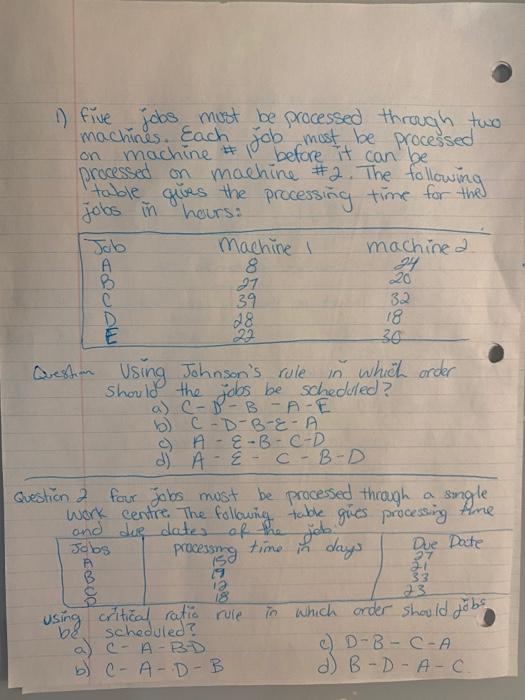 1) five jobs must be processed through two
machines. Each job must be processed
on machine #1 before it can be
processed on machine #2. The following
table gives the processing time for the
jobs in hours:
Job Machine 1 machine 2
A 8 24
B 27 20
C 39 32
D 28 18
E 22 30
Question Using Johnson's rule in which order
should the jobs be scheduled?
a) C-D-B-A-E
b) C-D-B-E-A
c) A-E-B-C-D
d) A-E-C-B-D
Question 2 four jobs must be processed through a single
work centre. The following table gives processing time
and due dates of the job.
Jobs processing time in days Due Date
A 15 27
B 19 21
C 12 33
D 18 23
using critical ratio rule in which order should jobs
be scheduled?
a) C-A-B-D c) D-B-C-A
b) C-A-D-B d) B-D-A-C.